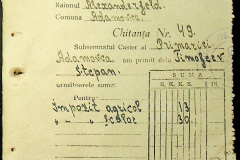 Raionul Alexanderfeld.
Comuna Adamovca.
Chitanţa Nr. 49.
Subsemnatul Casier al Primariei
Adamovca am primit dela Timofeev
Stepan.
următoarele sume:
SUMA
R. K. K. S. M.
Pentru
Impozit agricol 13
" " scolar 30